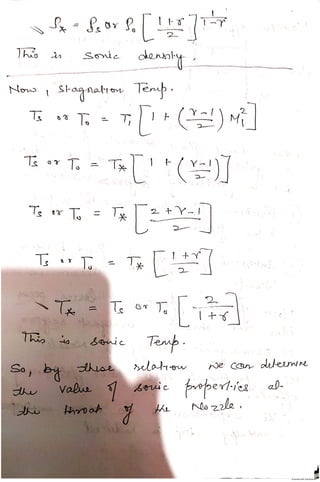 ρ* = ρs or ρo [ (1+γ)/2 ]^(1/(1-γ))
This is sonic density.
Now, Stagnation Temp.
Ts or To = T1 [ 1 + ((γ-1)/2) M1² ]
Ts or To = T* [ 1 + ((γ-1)/2) ]
Ts or To = T* [ (2+γ-1)/2 ]
Ts or To = T* [ (1+γ)/2 ]
T* = Ts or To [ 2/(1+γ) ]
This is sonic Temp.
So, by these relation we can determine
the value of sonic properties at
the throat of the Nozzle.